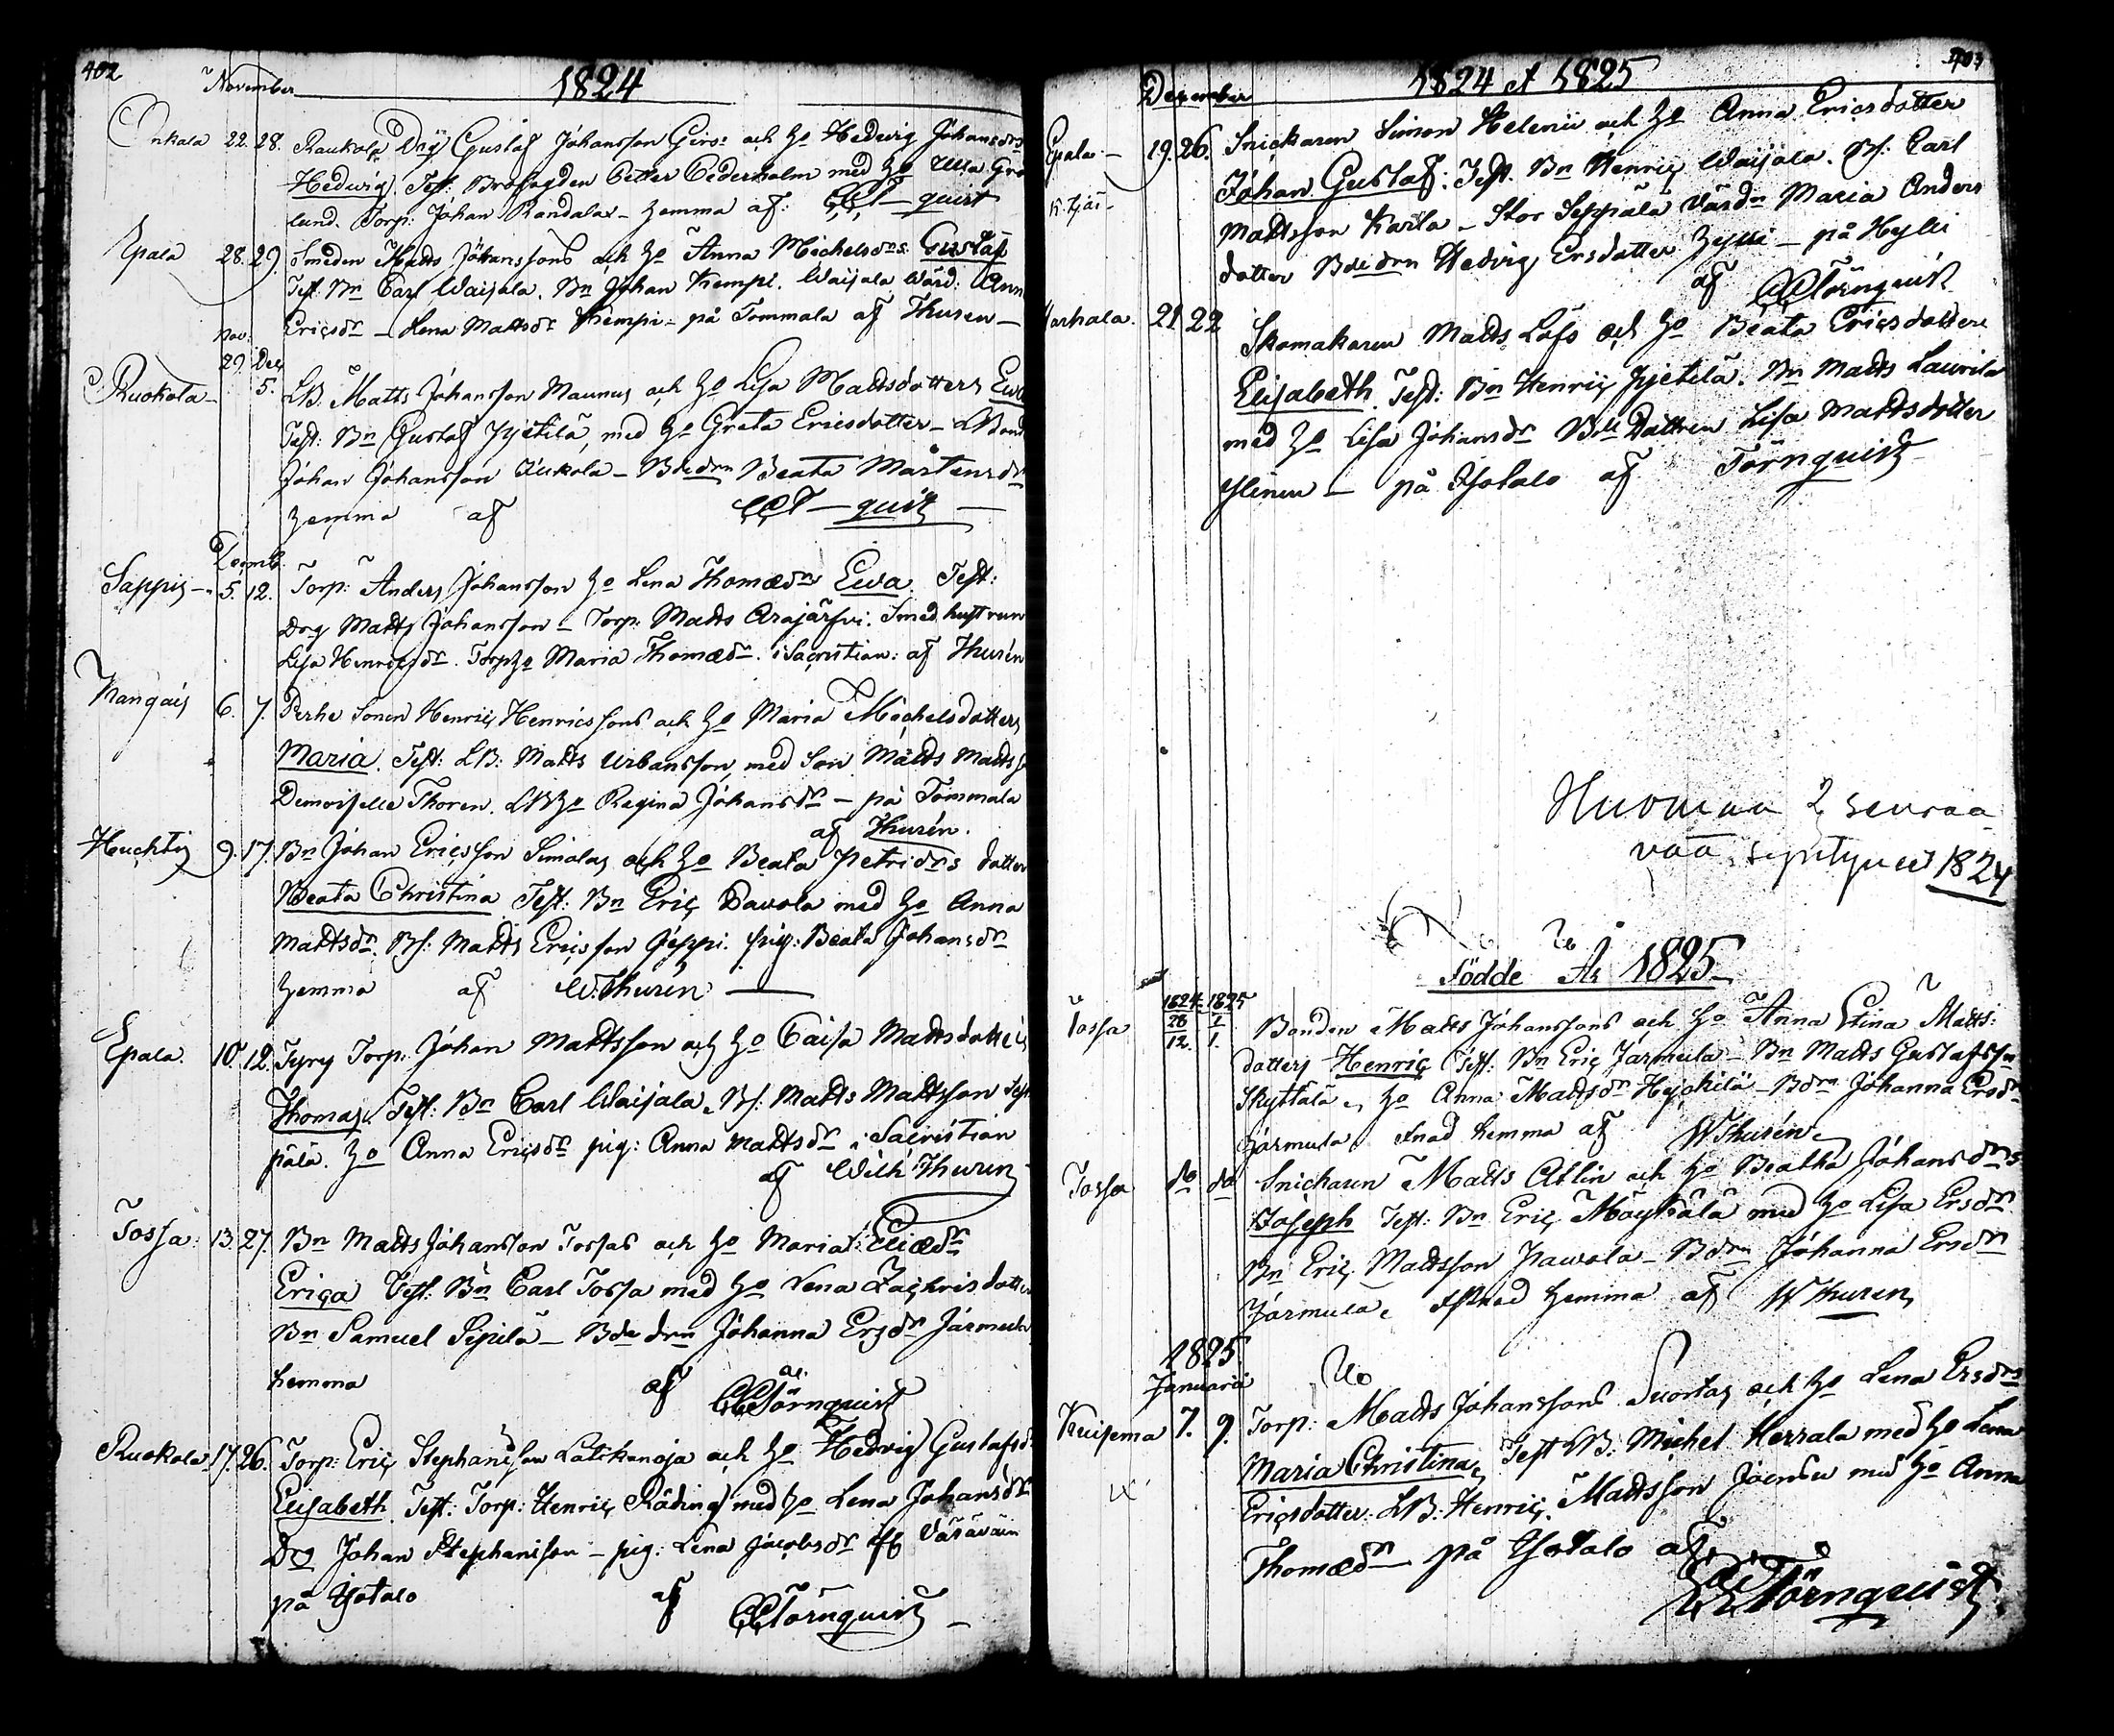 402
November
1824
Onkala 22. 28. Raukola Drg Gustaf Johansson Girs: och Ho Hedwig Johansdrs
Hedwig. Test: Brofogden Petter Cederholm med Ho Ulla Grö
lund. Torp: Johan Randala - hemma af: CCT-quist
Epala 28. 29. Smeden Matts Johanssons och Ho Anna Michelsdrs Gustaf
Test: Bn Carl Waisala. Bn Johan Kempi. Waisala Wärd: Ann
Ericsdr - Lena Mattsdr Kempi - på Tommala af Thuren -
Nov: 29 Dec
Ruokola - 5. LB. Matts Johansson Maunus och Ho Lisa Mattsdotters Ewa
Test: Bn Gustaf Jyetilä, med Ho Greta Ericsdotter - LBond
Johan Johansson Juckola - Bdedrn Beata Mårtensdr
hemma af CCT-quist -
Decemb.
Sappis - 5. 12. Torp: Anders Johansson Ho Lena Thomædrs Ewa. Test:
Drg Matts Johansson - Torp: Matts Arajärfvi. Smed hustrun
Lisa Henricsdr. TorpHo Maria Thomædr. i Sacristian: af Thurén
Kangais 6. 7. Perhe Sonen Henric Henricssons och Ho Maria Michelsdotters
Maria. Test: LB: Matts Urbansson, med Son Matts Matts
Demoiselle Thoren. LBHo Regina Johansdr - på Tommala
af Thurén.
Huchtis 9. 17. Bn Johan Ericsson Simolas och Ho Beata Petridrs dotter
Beata Christina Test: Bn Eric Pavola med Ho Anna
Mattsdr. Bs: Matts Ericsson Jeppi. pig: Beata Johansdr
hemma af W:Thurén -
Epala. 10. 12. Tyry Torp: Johan Mattsson och Ho Caisa Mattsdotters
Thomas. Test: Bn Carl Waisala. Bs: Matts Mattsson Sep
pälä. Ho Anna Ericsdr pig: Anna Mattsdr i Sacristian
af Wilh: Thuren
Tossa: 13. 27. Bn Matts Johansson Tossas och Ho Maria Eliædr
Erica Test: Bn Carl Tossa med Ho Lena Zachrisdotter
Bn Samuel Sipilä - Bdedrn Johanna Ersdr Järmula
hemma af CCTörnquist
Ruokola. 17. 26. Torp: Eric Stephansson Latikanoja och Ho Hedvig Gustafsdr
Elisabeth. Test: Torp: Henric Räding med Ho Lena Johansdr
Drg Johan Stephanison - pig: Lena Jacobsdr
på Isotalo af CCTörnquist -
403
December
1824 et 1825
Epala - 19. 26. Snickaren Simon Helenii och Ho Anna Ericsdotter
Johan Gustaf: Test. Bn Henric Waisala. Bs: Carl
Mattsson Karla - Stor Seppälä Värdn Maria Anders
dotter Bdedrn Hedvig Ersdotter Hylli - på Hylli
af CCTörnquist
Karhala. 21 22 Skomakaren Matts Löfs och Ho Beata Ericsdotters
Elisabeth. Test: Bn Henric Jyetilä. Bn Matts Laurila
med Ho Lisa Johansdr Bde Dottren Lisa Mattsdotter
Ylinen - på Isotalo af Törnquist
Huomaa 2 seuraa
vaa, syntyneet 1824
Födde År 1825
1824 1825
Tossa 28 1 Bonden Matts Johanssons och Ho Anna Stina Matts:
12. 1. dotters Henric Test: Bn Eric Järmula - Bn Matts Gustafsson
Skyttälä, Ho Anna Mattsdr Hyckilä - Bdrn Johanna Ersdr
Järmula hemma af WThurén
Tossa do do Snickaren Matts Atlin och Ho Beatha Johansdrs
Joseph Test: Bn Eric Mäykälä med Ho Lisa Ersdr
Bn Eric Mattsson Pawola - Bdrn Johanna Ersdr
Järmula, hemma af WThuren,
1825
Januarii
Kuisema 7. 9. Torp: Matts Johanssons Suortas och Ho Lena Ersdrs
Maria Christina, Test LB: Michel Herrala med Ho Lena
Ericsdotter. LB: Henric Mattsson med Ho Anna
Thomædr - på Isotalo af
CCTörnquist.